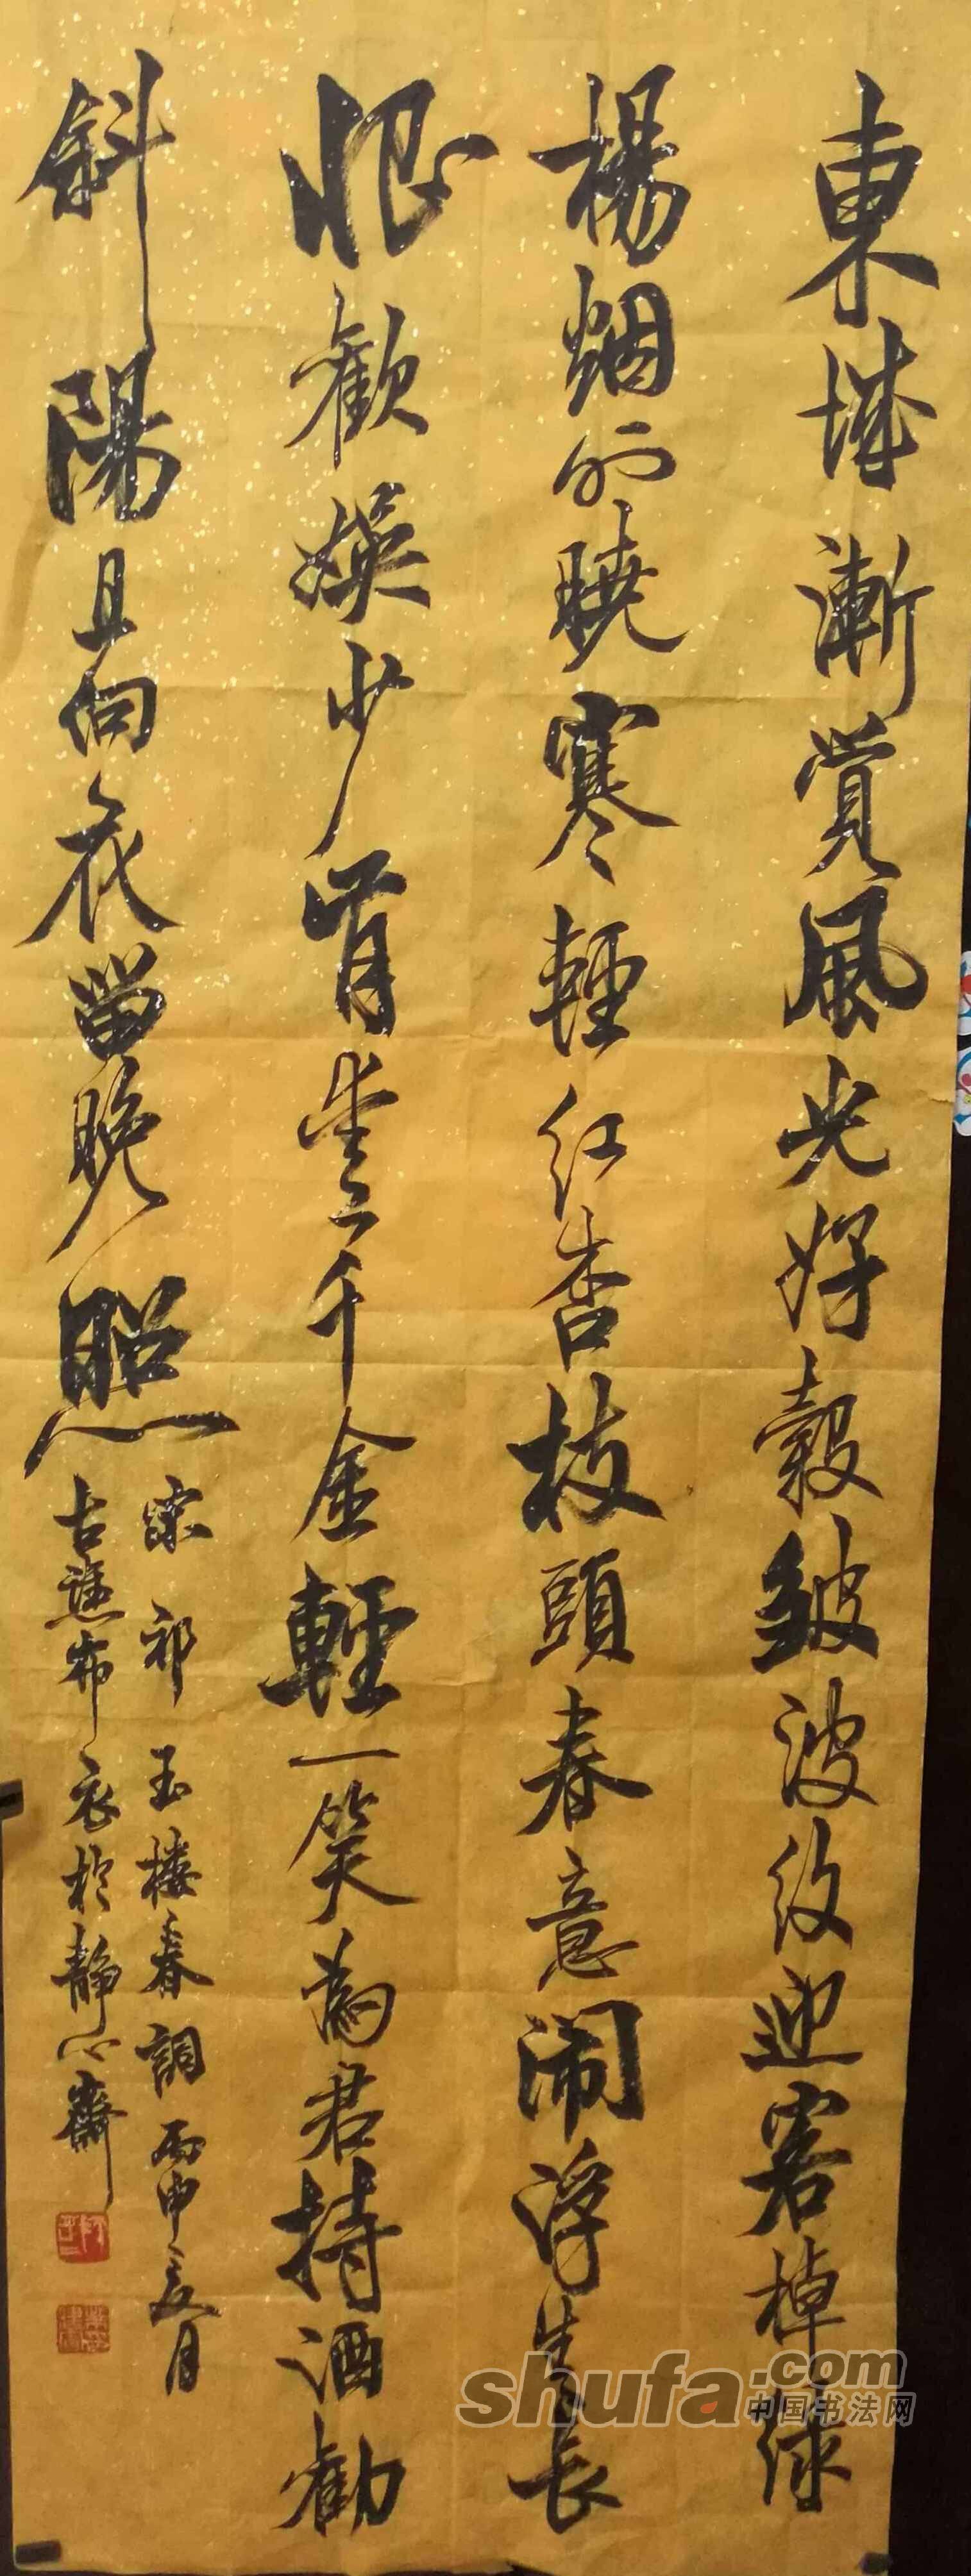 東城漸覺風光好縠皺波紋迎客棹綠
楊烟外曉寒輕紅杏枝頭春意闹浮生長
恨歡娛少肯愛千金輕一笑為君持酒勸
斜陽且向花留晚照
宋祁 玉楼春調 丙申五月
古譙布衣於静心齋
shufa.com
中国书法网